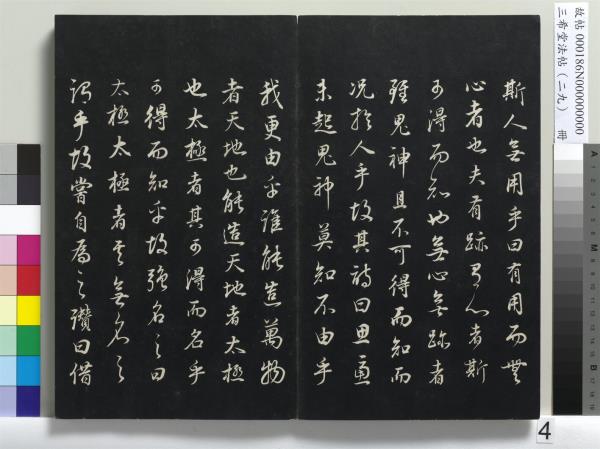 故帖 000186N000000000
三希堂法帖（二九） 冊
斯人無用乎曰有用而無
心者也夫有跡有心者斯
可得而知也無心無跡者
雖鬼神且不可得而知而
況於人乎故其詩曰思慮
未起鬼神莫知不由乎
我更由乎誰能造萬物
者天地也能造天地者太極
也太極者其可得而名乎
可得而知乎故強名之曰
太極太極者其無名之
謂乎故嘗自為之讚曰借
4